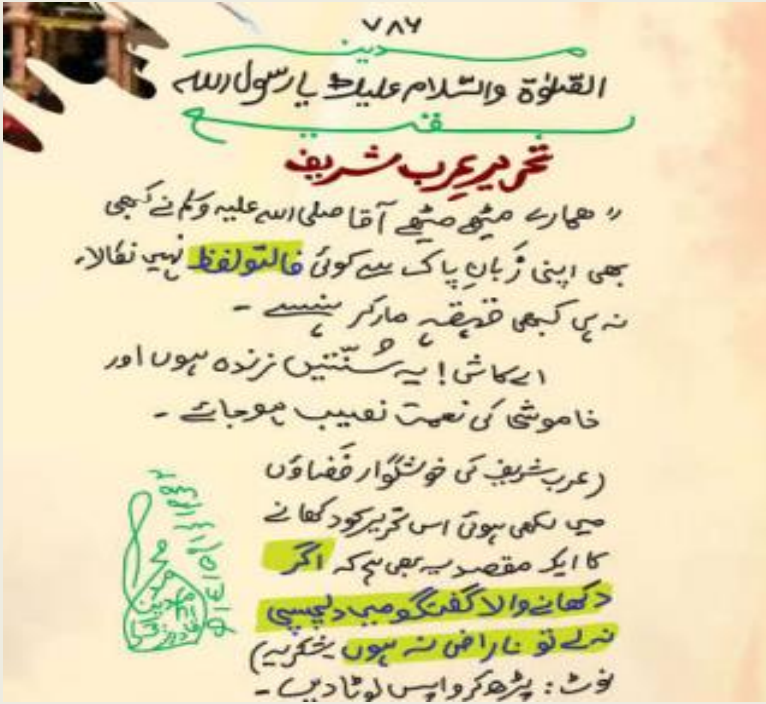 ۷۸۶
مدینہ
الصّلوٰۃ والسّلام علیك یارسول اللہ
بقیع
تحریرِ عرب شریف
" ہمارے میٹھے میٹھے آقا صلی اللہ علیہ وسلم نے کبھی
بھی اپنی زَبانِ پاک سے کوئی فالتو لفظ نہیں نکالا،
نہ ہی کبھی قہقہہ مار کر ہنسے -
اے کاش! یہ سُنّتیں زندہ ہوں اور
خاموشی کی نعمت نصیب ہوجائے -
(عرب شریف کی خوشگوار فَضاؤں
میں لکھی ہوئی اس تحریر کو دکھانے
کا ایک مقصد یہ بھی ہے کہ اگر
دکھانے والا گفتگو میں دلچسپی
نہ لے تو ناراض نہ ہوں شکریہ)
نوٹ: پڑھ کر واپس لوٹا دیں -